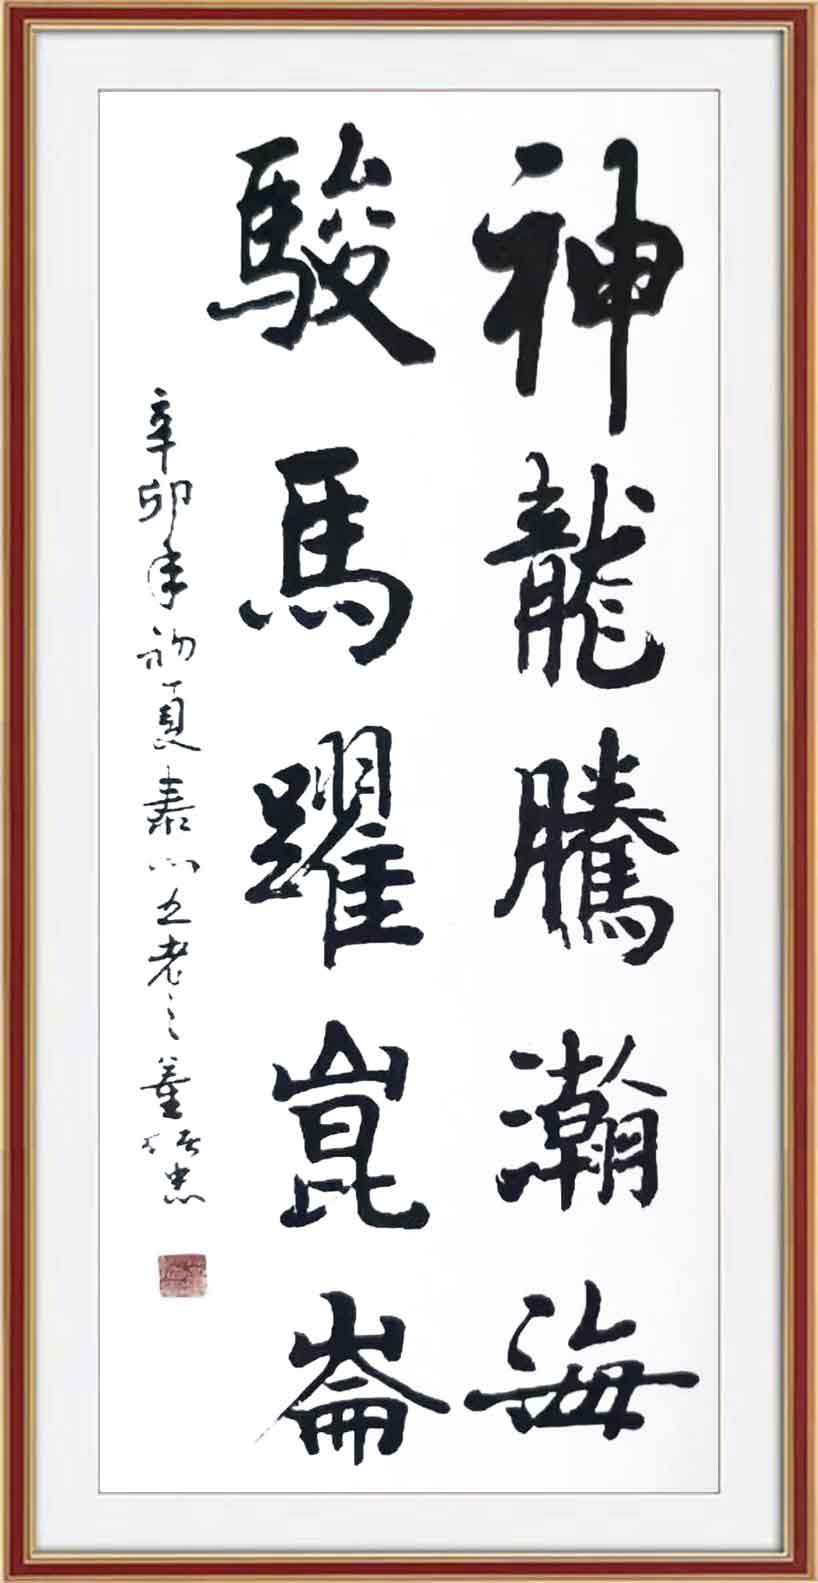 神龍騰瀚海
駿馬躍崑崙
辛卯年初夏泰山五老之董振忠